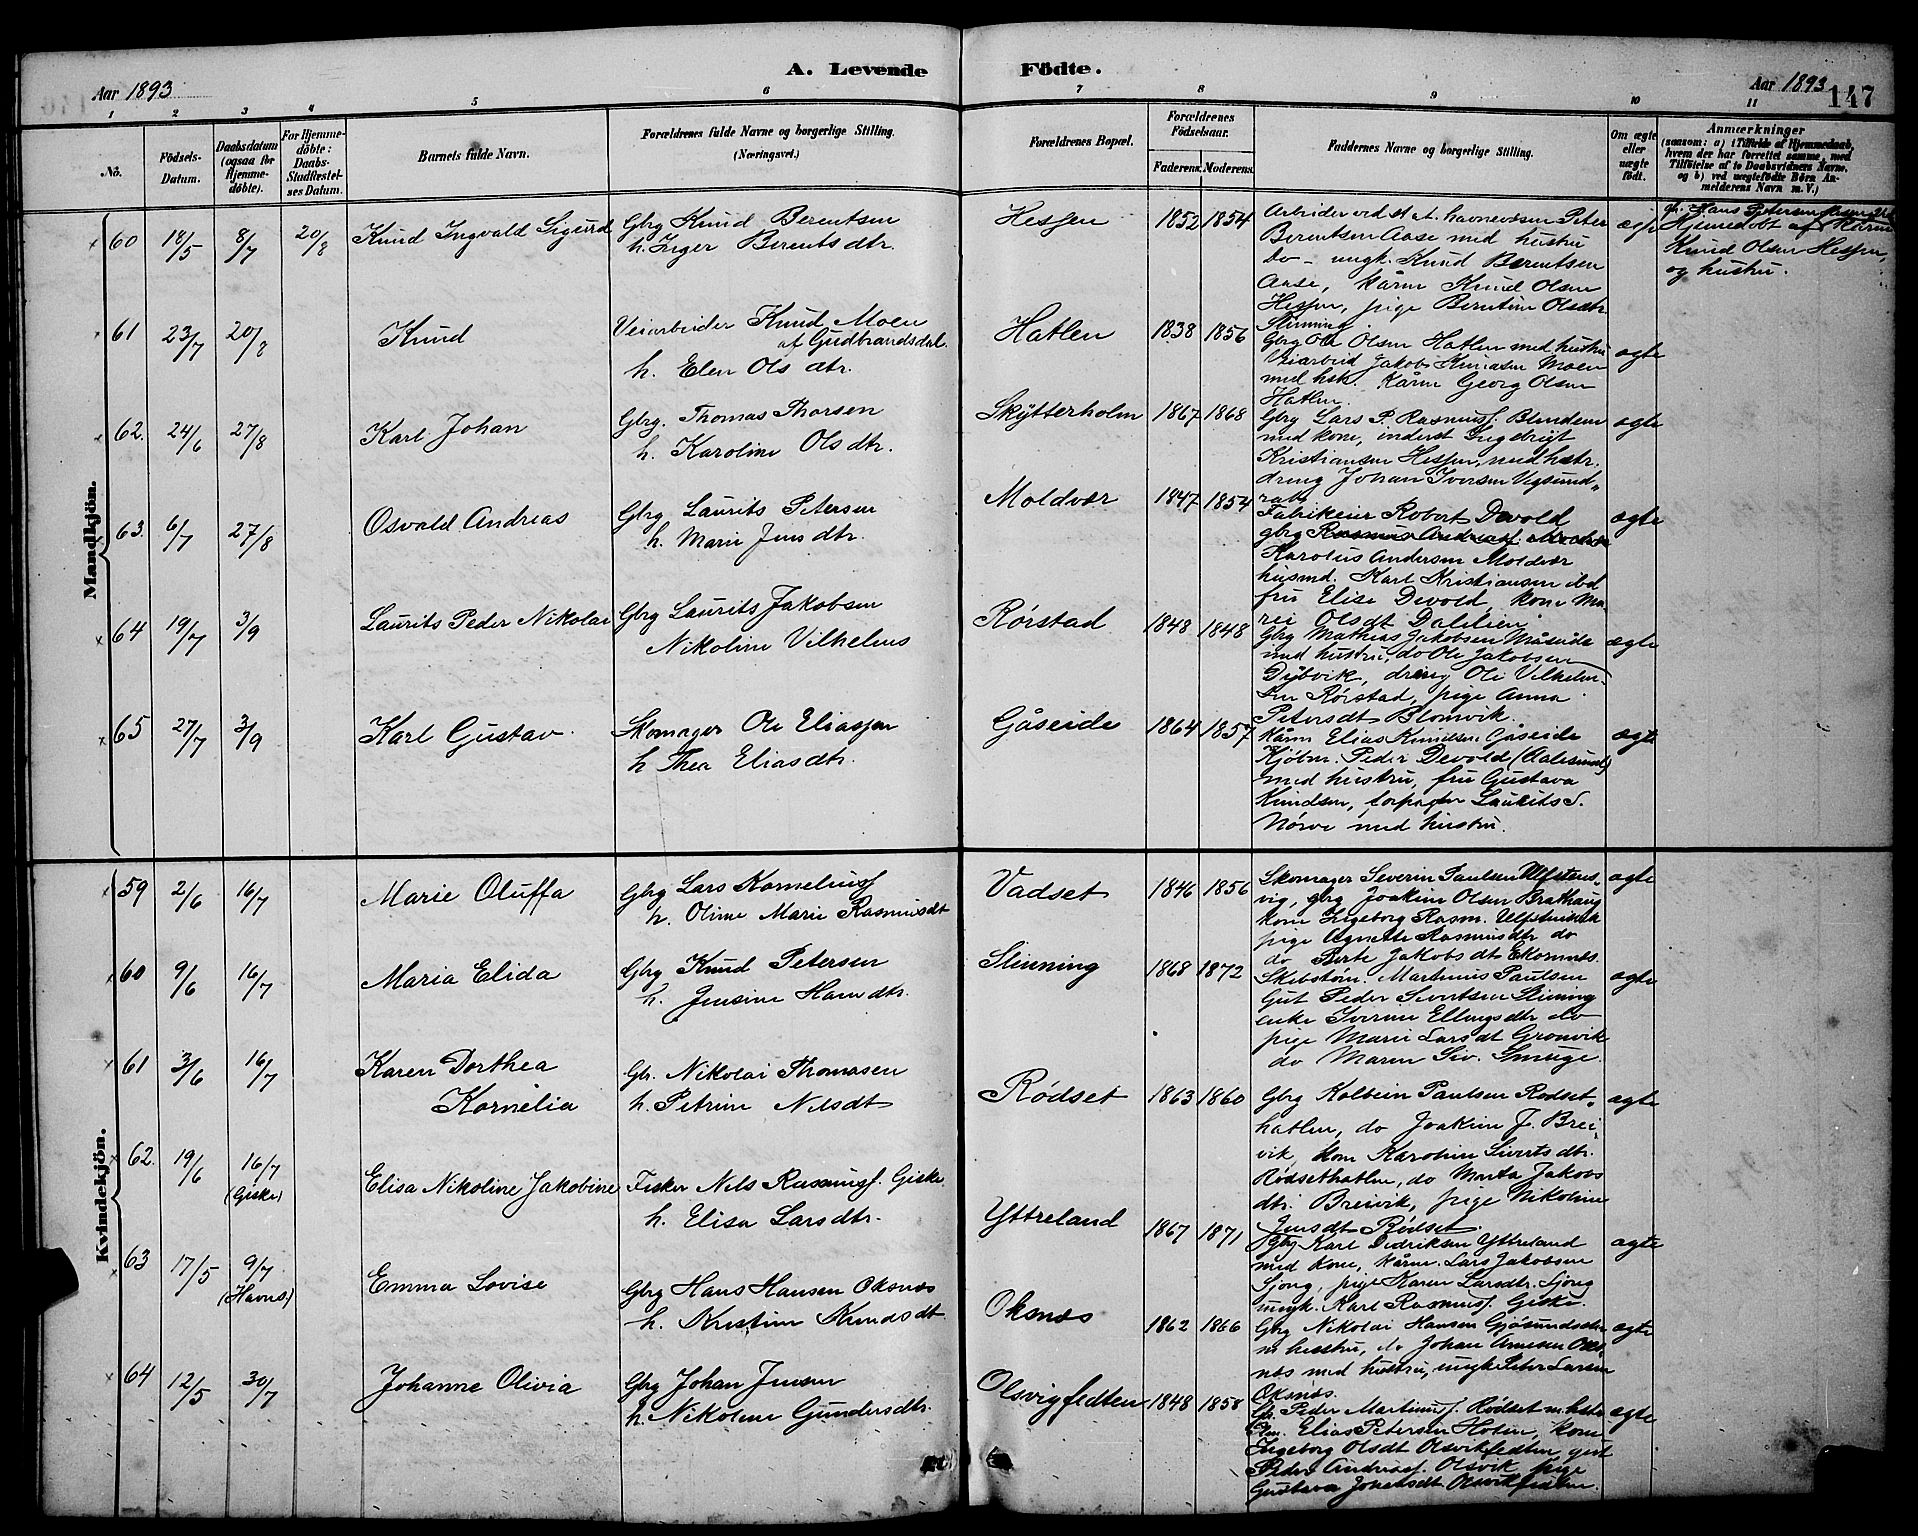 A. Levende Födte.
Aar 1893
Aar 1893
147
1 2 3 4 5 6 7 8 9 10 11
No.
Födsels-Datum.
Daabsdatum (ogsaa for Hjemme-döbte).
For Hjemme-döbte: Daabs-Stadfæstel-ses Datum.
Barnets fulde Navn.
Forældrenes fulde Navne og borgerlige Stilling. (Næringsvei.)
Forældrenes Bopæl.
Forældrenes Födselsaar.
Faderens. Moderens.
Faddernes Navne og borgerlige Stilling.
Om ægte eller uægte födt.
Anmærkninger
(saasom: a) i Tilfælde af Hjemmedaab, hvem der har forrettet samme, med Tilföielse af to Daabsvidners Navne, og b) ved uægtefödte Börn An-melderens Navn m. V.)
Mandkjön.
60 18/5 8/7 20/8 Knud Ingvald Sigurd
Gbrg Knud Berentsen
h. Inger Berentsdtr.
Hessen 1852 1854
Arbeider ved st. a. t. havnevæsen Peter
Berentsen Aase med hustru
do - ungk. Knud Berentsen
Aase, kårm Knud Olsen
Hessen, pige Berntine Olsdtr
Slinning.
ægte
Hjemmedöbt af kårm
Knud Olsen Hessen,
og hustru.
61 23/7 20/8 Knud
Veiarbeider Knud Moen
af Gudbrandsdal.
h. Elen Olsdtr.
Hatlen 1838 1856
Gbrg Ole Olsen Hatlen med hustru
Veiarbeid Jakob Knudsen Moen
med hstr. Kårm Georg Olsen
Hatlen.
ægte
62. 24/6 27/8 Karl Johan
Gbrg. Thomas Thorsen
h. Karoline Olsdtr.
Skytterholm 1867 1868
Gbrg Lars P. Rasmuss. Blindem
med kone, inderst Ingebrigt
Kristiansen Hessen, med hstr.
dreng Johan Iversen Vegsund-
ægte
63. 6/7 27/8 Osvald Andreas
Gbrg Laurits Petersen
h. Marie Jensdtr.
Moldvær 1847 1854
Fabrikeier Robert Devold
gbrg
Karolus Andersen Moldvær
husmd. Karl Kristiansen ibd
fru Elise Devold, kone Ma-
rei Olsdt Dahlen.
ægte
64 19/7 3/9 Laurits Peder Nikolai
Gbrg Laurits Jakobsen
Nikoline Vilhelms
Rörstad 1848 1848
Gbrg Mathias Jakobsen Måseide
med hustru, do Ole Jakobsen
Dybvik, dreng Ole Vilhelm-
sen Rörstad, pige Anna
Petersdt Blomvik.
ægte
65 27/7 3/9 Karl Gustav
Skomager Ole Eliassen
h Thea Eliasdtr.
Gåseide 1864 1857
Kårm Elias Knudsen Gåseide
Kjöbm. Peder Devold (Aalesund)
med hustru, fru Gustava
Knudsen, forpagter Laurits S.
Nörve med hustru.
ægte
Kvindekjön.
59 2/6 16/7 Marie Oluffa
Gbrg Lars Korneliuss
h. Oline Marie Rasmusdt
Vadset 1846 1856
Skomager Severin Paulsen Ulfstens-
vig, gbrg Joakim Olsen Brathaug
kone Ingeborg Rasm. Ulfstensvik
pige Agnette Rasmusdtr do
do Berte Jakobsdt Ekornæs.
ægte
60 9/6 16/7 Maria Elida
Gbrg Knud Petersen
h. Jensine Hansdtr.
Slinning 1868 1872
Skibstöm. Martinus Paulsen
Gut Peder Sivertsen Slinning
enke Iverine Ellingsdtr do
pige Marie Larsdt Grönvik
do Maren Siv. Smuge.
ægte
61 3/6 16/7 Karen Dorthea
Kornelia
Gbr. Nikolai Thomasen
h. Petrine Nilsdt
Rödset 1863 1860
Gbrg Kolbein Paulsen Rödset-
hatlen, do Joakim J. Brei-
vik, kone Karoline Sivertsdtr.
Rödsethatlen, do Marta Jakobs
dtr. Breivik, pige Nikoline
Jensdt Rödset.
ægte
62. 19/6 16/7
(Giske)
Elisa Nikoline Jakobine
Fisker Nils Rasmuss. Giske
h. Elisa Larsdtr.
Ytterland 1867 1871
Gbrg Karl Didriksen Ytterland
med kone, kårm. Lars Jakobsen
Sjong, pige Karen Larsdtr. Sjong
ungk. Karl Rasmuss. Giske.
ægte
63 17/5 9/7
(Havns)
Emma Lovise
Gbrg Hans Hansen Oksnæs
h. Kristine Knudsdt
Oksnæs 1862 1866
Gbrg Nikolai Hansen Gjösundsætr
m hustru, do Johan Arnesen Oks-
næs med hustru, ungk Peter Larsen
Oksnæs.
ægte
64 12/5 30/7 Johanne Olivia
Gbrg Johan Jensen
h. Nikoline Gundersdtr.
Olsvigfedten 1848 1858
Gb. Peder Martinuss. Rödset m. hstr
Elias Petersen Holen, kone
Ingeborg Olsdt Olsvikfedten, gut
Peder Andreass. Olsvik, pige
Gustava Johansdt Olsvikfedten.
ægte